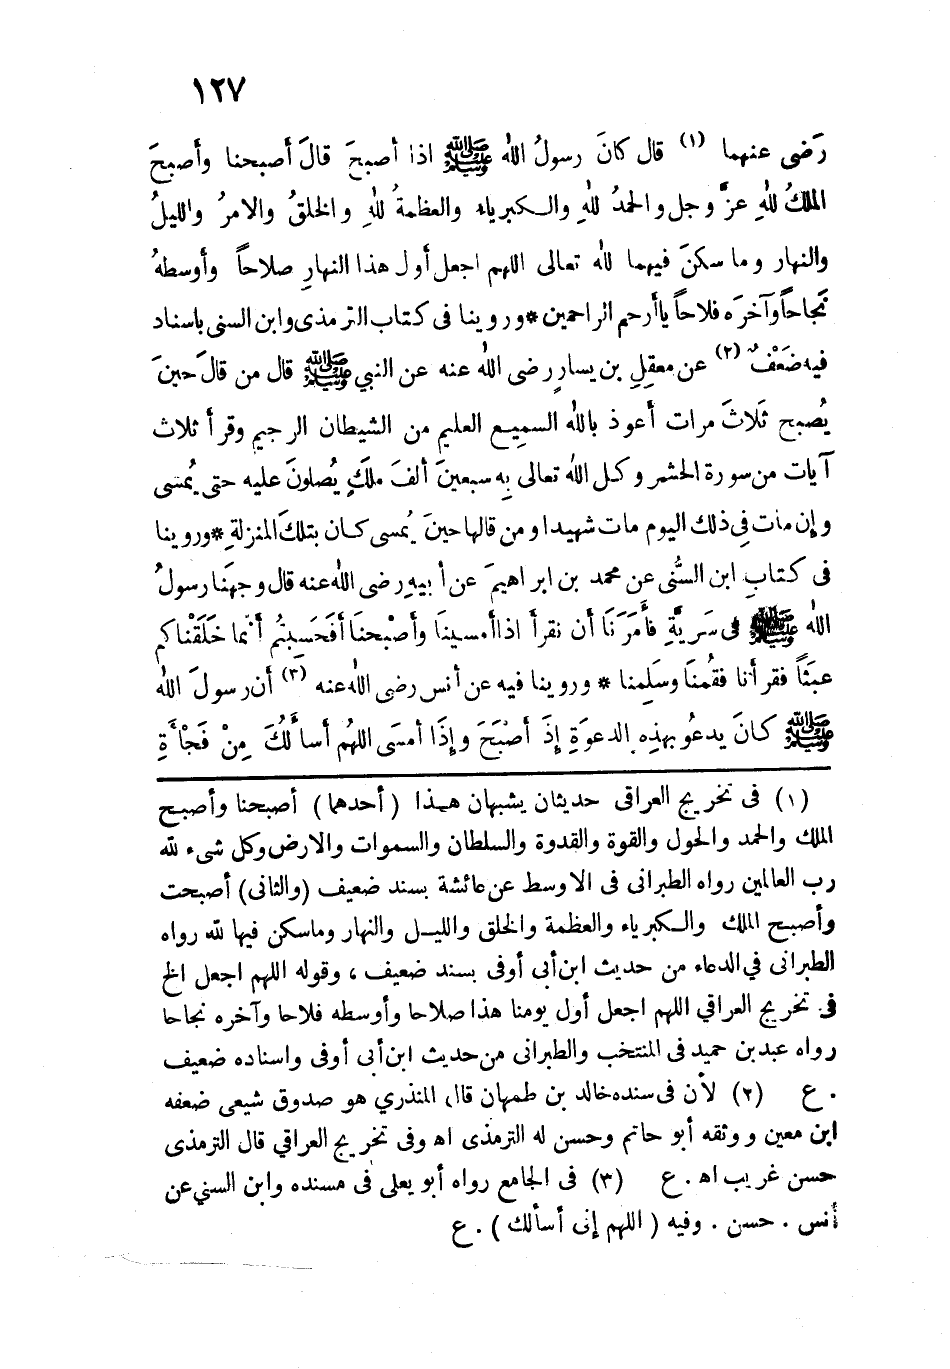 ١٢٧
رَضى عنهما (١) قال كانَ رسولُ اللهِ ﷺ اذا أصبحَ قالَ أصبحنا وأصبحَ
الملكُ للهِ عزَّ وجل والحمدُ للهِ والكبرياء والعظمةُ للهِ والخلقُ والامرُ والليلُ
والنهار وما سكنَ فيهما لله تعالى اللهم اجعل أول هذا النهارِ صلاحاً وأوسطهُ
نَجاحاً وآخرَه فلاحاً ياأرحم الراحمين * وروينا فى كتاب الترمذى وابن السنى باسناد
فيه ضَعْفٌ (٢) عن معقلِ بن يسارٍ رضى الله عنه عن النبي ﷺ قال من قالَ حينَ
يُصبح ثَلاثَ مرات أعوذ بالله السميع العليم من الشيطان الرجيم وقرأ ثلاث
آيات من سورة الحشر وكل الله تعالى بِه سبعينَ ألفَ ملَكٍ يُصلونَ عليه حتى يُمسى
وإن مات فِى ذلك اليوم مات شهيدا ومن قالها حينَ يُمسى كان بتلكَ المنزلةِ * وروينا
فى كتابِ ابن السُّنى عن محمد بن ابراهيمَ عن أبيهِ رضى الله عنه قال وجهَنا رسولُ
الله ﷺ فى سَريةٍ فأمَرَنَا أن نقرأ اذا أمسينَا وأصْبحنَا أفَحَسِبْتُم أنَّما خَلَقْناكم
عبَثاً فقرأنا فغَنِمْنَا وسَلِمنا * وروينا فيه عن أنس رضى الله عنه (٣) أن رسولَ الله
ﷺ كانَ يدعُو بهذهِ الدعوَةِ إذَ أصْبَحَ وإذَا أمسَى اللهُم أسأَلُكَ مِنْ فَجْأَةِ
(١) فى تخريج العراقى حديثان يشبهان هذا (أحدهما) أصبحنا وأصبح
الملك والحمد والحول والقوة والقدوة والسلطان والسموات والارض وكل شىء لله
رب العالمين رواه الطبرانى فى الاوسط عن عائشة بسند ضعيف (والثانى) أصبحت
وأصبح الملك والكبرياء والعظمة والخلق والليل والنهار وماسكن فيها لله رواه
الطبرانى في الدعاء من حديث ابن أبى أوفى بسند ضعيف ، وقوله اللهم اجعل الخ
فى تخريج العراقي اللهم اجعل أول يومنا هذا صلاحا وأوسطه فلاحا وآخره نجاحا
رواه عبد بن حميد فى المنتخب والطبرانى من حديث ابن أبى أوفى واسناده ضعيف
. ع (٢) لأن فى سنده خالد بن طهمان قال المنذري هو صدوق شيعى ضعفه
ابن معين ووثقه أبو حاتم وحسن له الترمذى اه وفى تخريج العراقي قال الترمذى
حسن غريب اه . ع (٣) فى الجامع رواه أبو يعلى فى مسنده وابن السني عن
أنس . حسن . وفيه ( اللهم إنى أسألك ) . ع